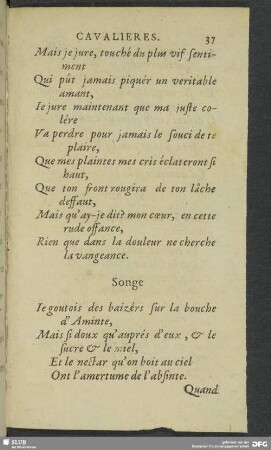 CAVALIERES. 37
Mais je jure, touché du plus vif senti-
ment
Qui pût jamais piquér un veritable
amant,
Ie jure maintenant que ma juste co-
lére
Va perdre pour jamais le souci de te
plaire,
Que mes plaintes mes cris éclateront si
haut,
Que ton front rougira de ton lâche
deffaut,
Mais qu'ay-je dit? mon cœur, en cette
rude offance,
Rien que dans la douleur ne cherche
la vangeance.
Songe
Ie goutois des baizérs sur la bouche
d'Aminte,
Mais si doux qu'auprés d'eux, & le
sucre & le miel,
Et le nectar qu'on boit au ciel
Ont l'amertume de l'absinte.
Quand
SLUB
DFG